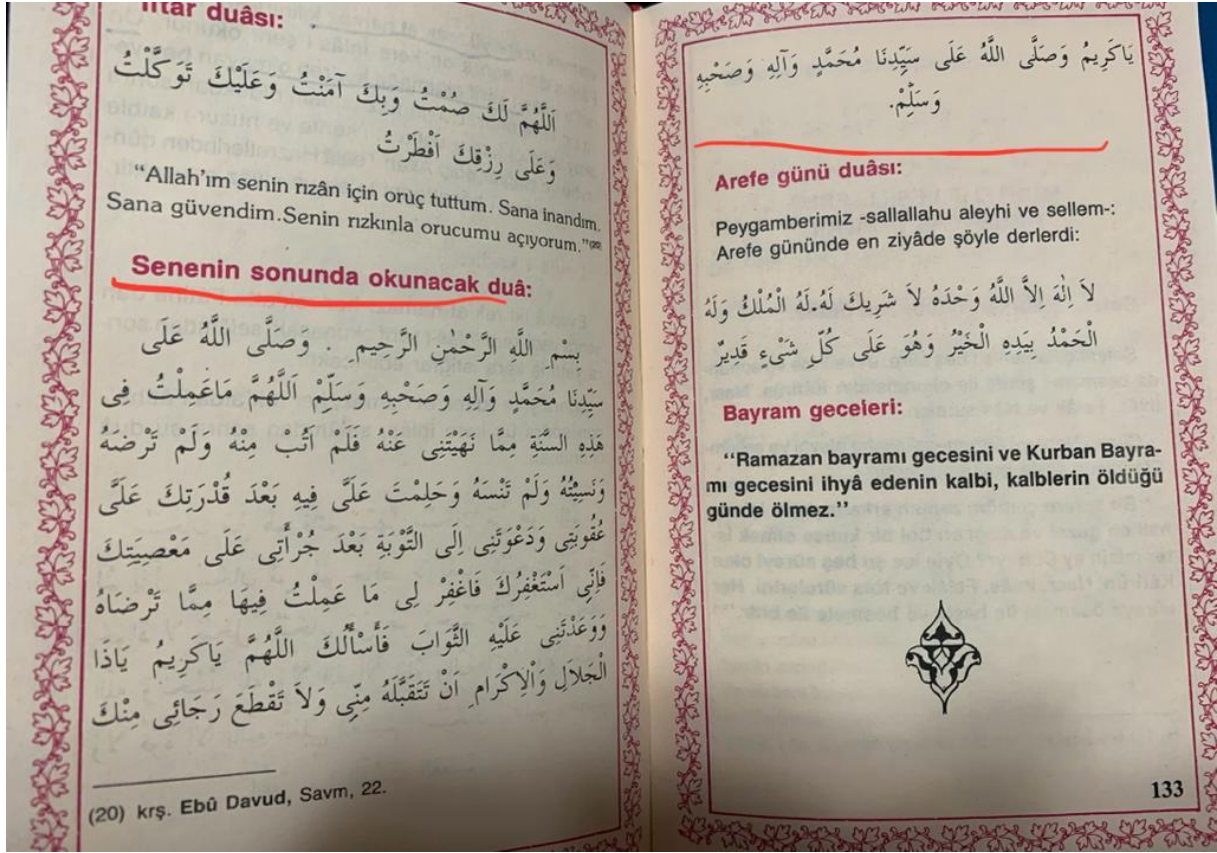 İftar duâsı:
اَللَّهُمَّ لَكَ صُمْتُ وَبِكَ آمَنْتُ وَعَلَيْكَ تَوَكَّلْتُ
وَعَلَى رِزْقِكَ اَفْطَرْتُ
“Allah’ım senin rızân için oruç tuttum. Sana inandım.
Sana güvendim.Senin rızkınla orucumu açıyorum.”⁽²⁰⁾
Senenin sonunda okunacak duâ:
بِسْمِ اللَّهِ الرَّحْمٰنِ الرَّحِيمِ . وَصَلَّى اللَّهُ عَلَى
سَيِّدِنَا مُحَمَّدٍ وَآلِهِ وَصَحْبِهِ وَسَلِّمْ اَللَّهُمَّ مَاعَمِلْتُ فِى
هَذِهِ السَّنَةِ مِمَّا نَهَيْتَنِى عَنْهُ فَلَمْ اَتُبْ مِنْهُ وَلَمْ تَرْضَهُ
وَنَسِيتُهُ وَلَمْ تَنْسَهُ وَحلِمْتَ عَلَىَّ فِيهِ بَعْدَ قُدْرَتِكَ عَلَىَّ
عُقُوبَتِى وَدَعَوْتَنِى اِلَى التَّوْبَةِ بَعْدَ جُرْأَتِى عَلَى مَعْصِيَتِكَ
فَاِنِّى اَسْتَغْفِرُكَ فَاغْفِرْ لِى مَا عَمِلْتُ فِيهَا مِمَّا تَرْضَاهُ
وَوَعَدْتَنِى عَلَيْهِ الثَّوَابَ فَأَسْأَلُكَ اللَّهُمَّ يَاكَرِيمُ يَاذَا
الْجَلاَلِ وَالْاِكْرَامِ اَنْ تَتَقَبَّلَهُ مِنِّى وَلاَ تَقْطَعَ رَجَائِى مِنْكَ
(20) krş. Ebû Davud, Savm, 22.
يَاكَرِيمُ وَصَلَّى اللَّهُ عَلَى سَيِّدِنَا مُحَمَّدٍ وَآلِهِ وَصَحْبِهِ
وَسَلِّمْ.
Arefe günü duâsı:
Peygamberimiz -sallallahu aleyhi ve sellem-:
Arefe gününde en ziyâde şöyle derlerdi:
لاَ اِلٰهَ اِلاَّ اللَّهُ وَحْدَهُ لاَ شَرِيكَ لَهُ.لَهُ الْمُلْكُ وَلَهُ
الْحَمْدُ بِيَدِهِ الْخَيْرُ وَهُوَ عَلَى كُلِّ شَىْءٍ قَدِيرٌ
Bayram geceleri:
‘‘Ramazan bayramı gecesini ve Kurban Bayra-
mı gecesini ihyâ edenin kalbi, kalblerin öldüğü
günde ölmez.’’
133